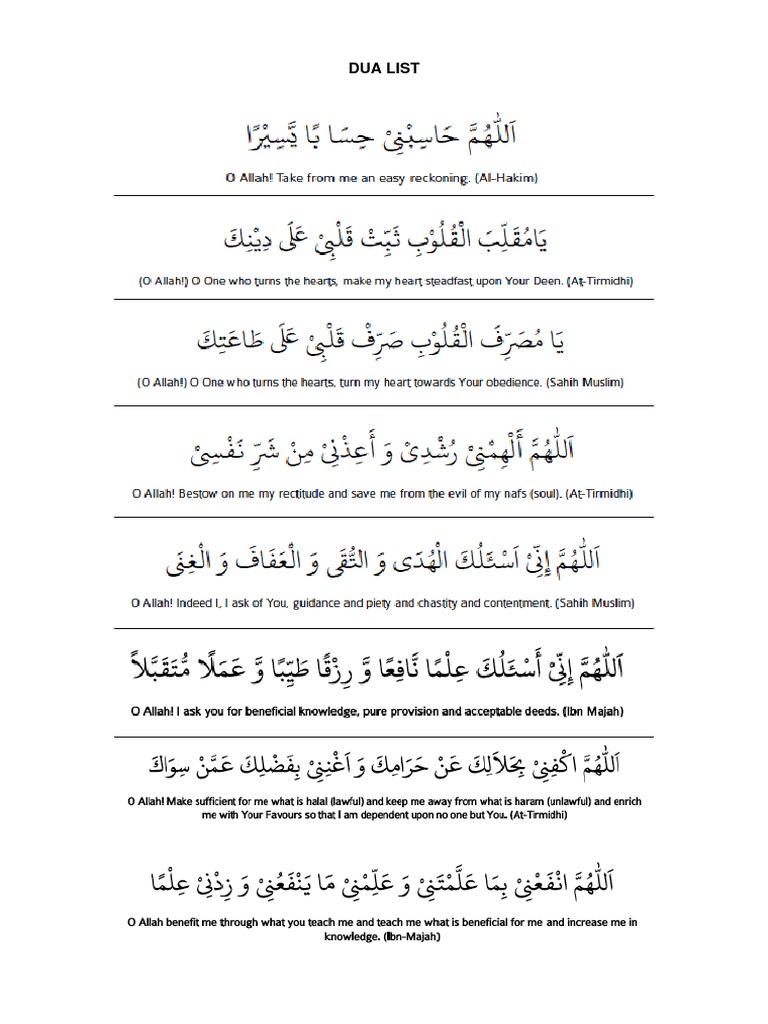 DUA LIST
اَللّٰهُمَّ حَاسِبْنِيْ حِسَا بًا يَّسِيْرًا
O Allah! Take from me an easy reckoning. (Al-Hakim)
يَامُقَلِّبَ الْقُلُوْبِ ثَبِّتْ قَلْبِيْ عَلَى دِيْنِكَ
(O Allah!) O One who turns the hearts, make my heart steadfast upon Your Deen. (At-Tirmidhi)
يَا مُصَرِّفَ الْقُلُوْبِ صَرِّفْ قَلْبِيْ عَلَى طَاعَتِكَ
(O Allah!) O One who turns the hearts, turn my heart towards Your obedience. (Sahih Muslim)
اَللّٰهُمَّ أَلْهِمْنِيْ رُشْدِيْ وَ أَعِذْنِيْ مِنْ شَرِّ نَفْسِيْ
O Allah! Bestow on me my rectitude and save me from the evil of my nafs (soul). (At-Tirmidhi)
اَللّٰهُمَّ إِنِّيْ اَسْئَلُكَ الْهُدَى وَ التُّقَى وَ الْعَفَافَ وَ الْغِنَى
O Allah! Indeed I, I ask of You, guidance and piety and chastity and contentment. (Sahih Muslim)
اَللّٰهُمَّ إِنِّيْ أَسْئَلُكَ عِلْمًا نَّافِعًا وَّ رِزْقًا طَيِّبًا وَّ عَمَلًا مُّتَقَبَّلاً
O Allah! I ask you for beneficial knowledge, pure provision and acceptable deeds. (Ibn Majah)
اَللّٰهُمَّ اكْفِنِيْ بِحَلاَلِكَ عَنْ حَرَامِكَ وَ اَغْنِنِيْ بِفَضْلِكَ عَمَّنْ سِوَاكَ
O Allah! Make sufficient for me what is halal (lawful) and keep me away from what is haram (unlawful) and enrich
me with Your Favours so that I am dependent upon no one but You. (At-Tirmidhi)
اَللّٰهُمَّ انْفَعْنِيْ بِمَا عَلَّمْتَنِيْ وَ عَلِّمْنِيْ مَا يَنْفَعُنِيْ وَ زِدْنِيْ عِلْمًا
O Allah benefit me through what you teach me and teach me what is beneficial for me and increase me in
knowledge. (Ibn-Majah)